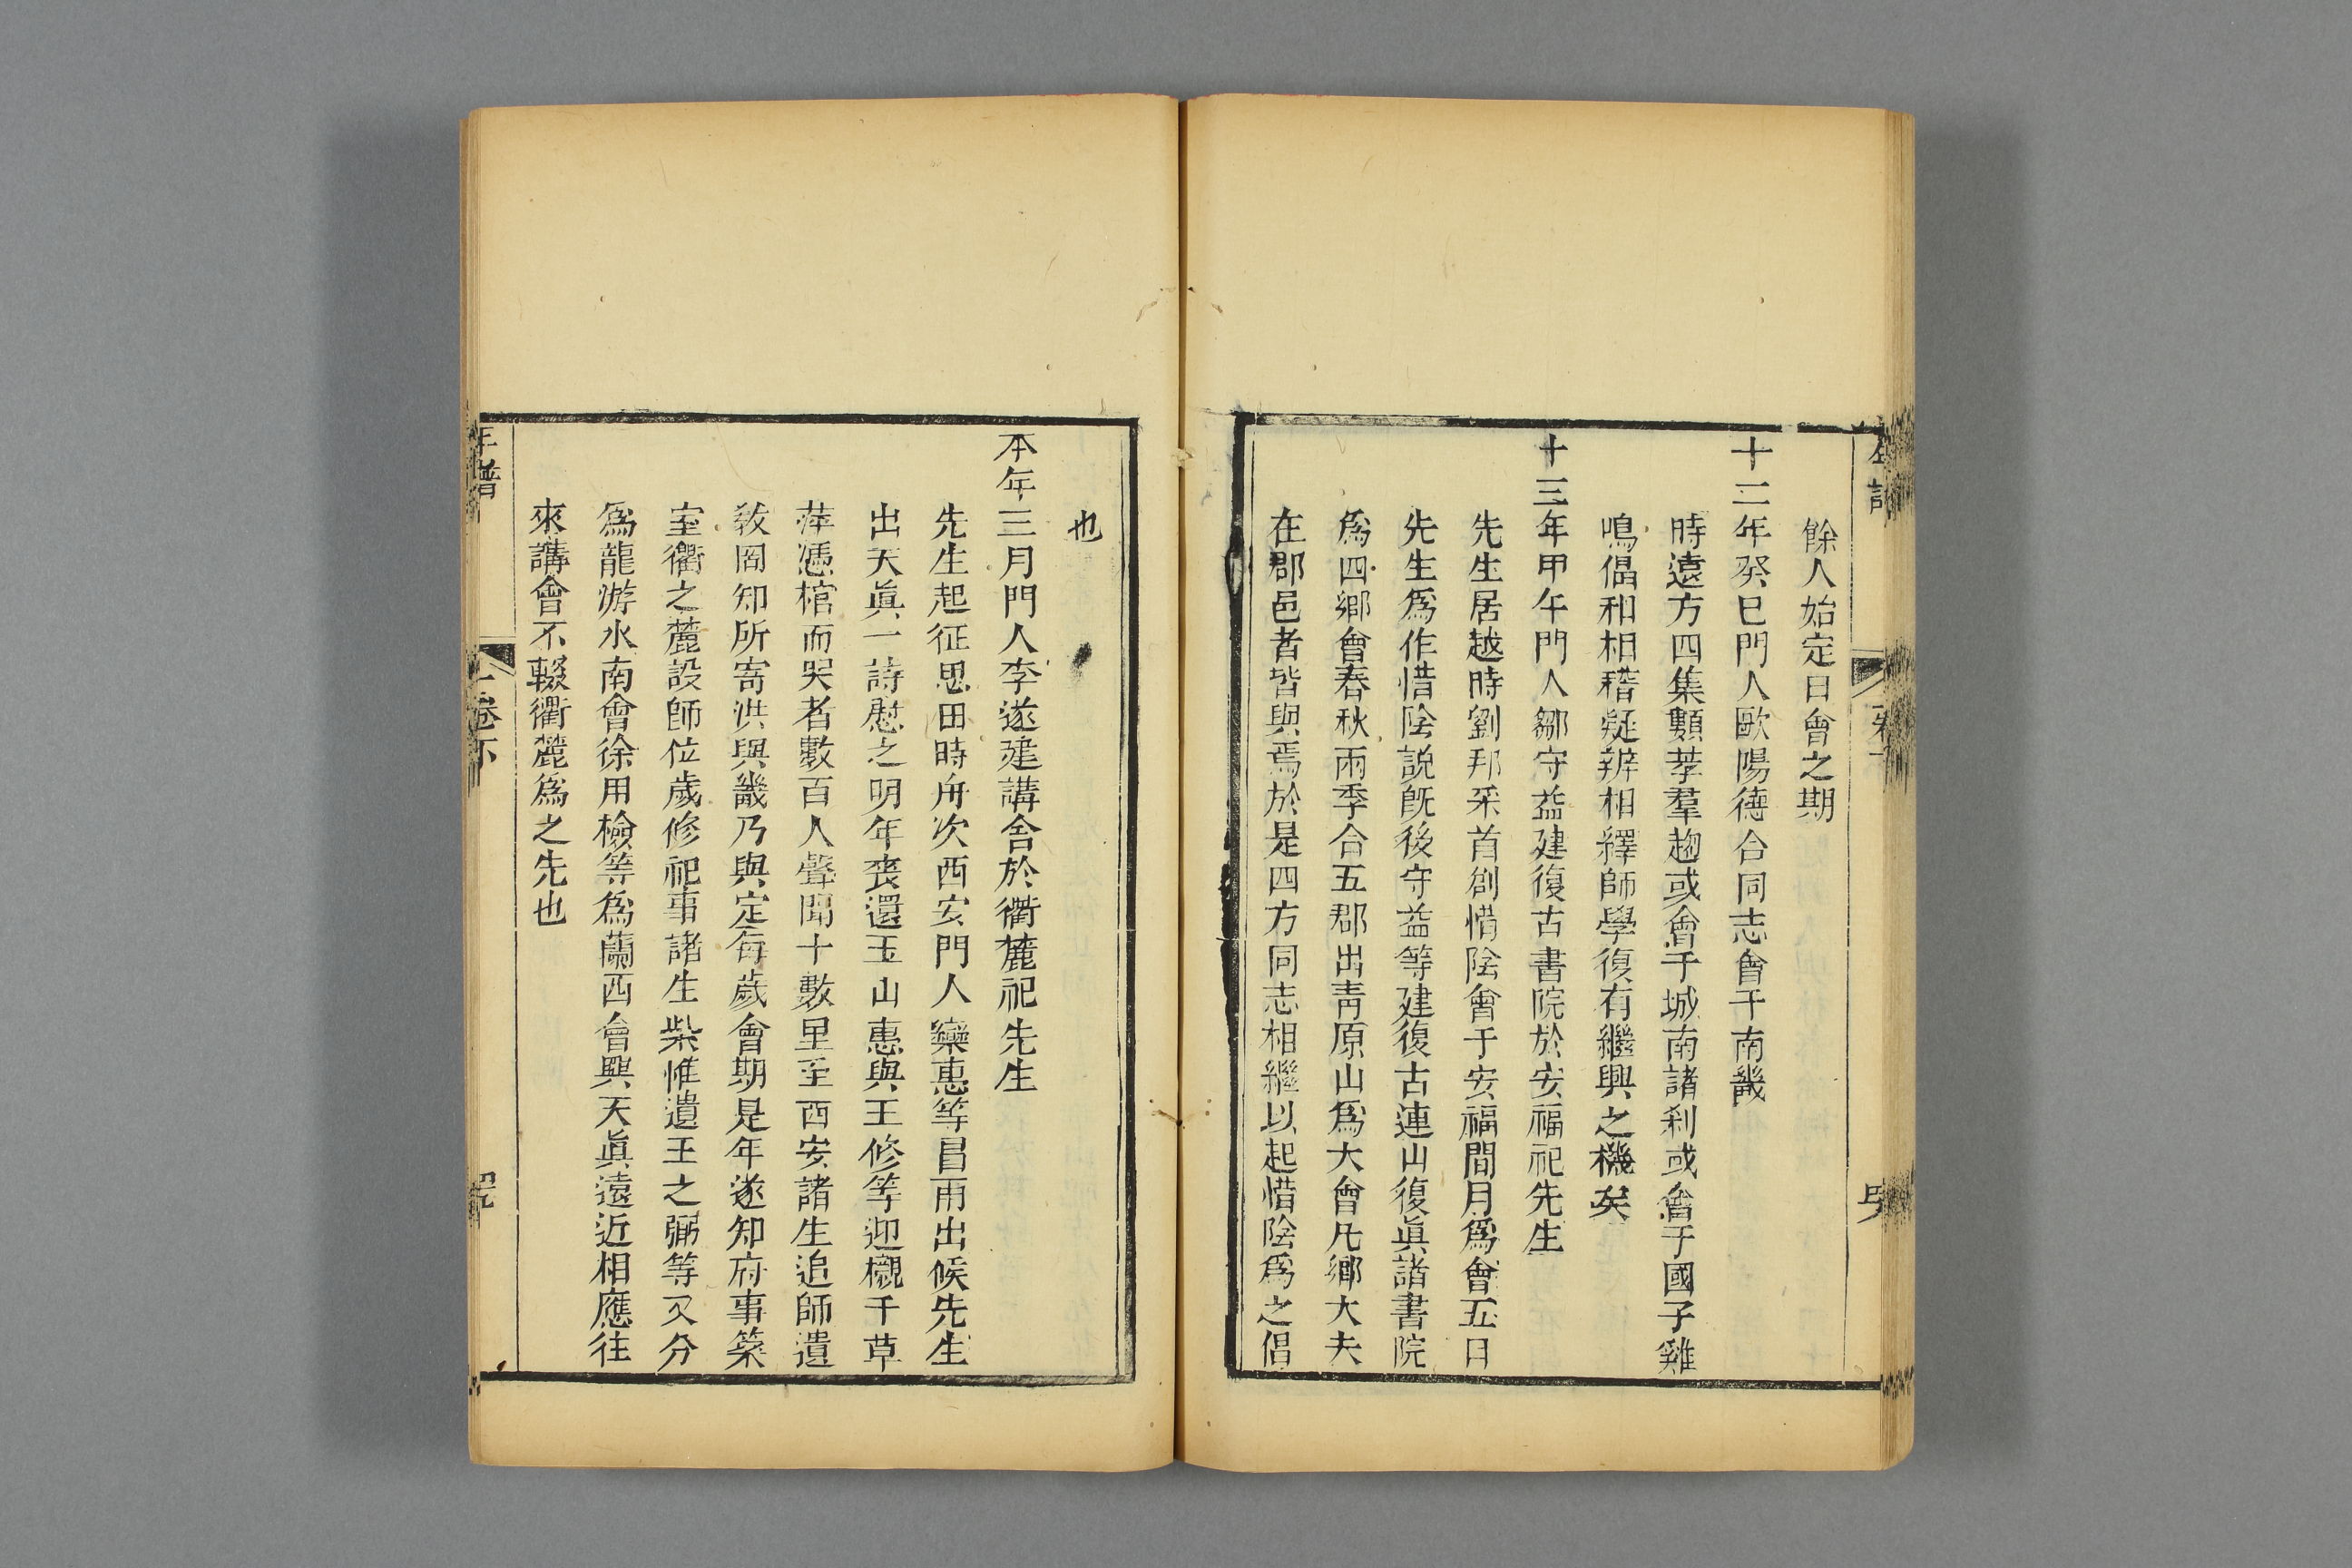 餘人始定日會之期
十二年癸巳門人歐陽德合同志會于南畿
時遠方四集類萃羣趨或會于城南諸刹或會于國子雞
鳴倡和相稽疑辨相繹師學復有繼興之機矣
十三年甲午門人鄒守益建復古書院於安福祀先生
先生居越時劉邦采首創惜陰會于安福間月爲會五日
先生爲作惜陰説既後守益等建復古連山復眞諸書院
爲四鄉會春秋兩季合五郡出靑原山爲大會凡鄉大夫
在郡邑者皆與焉於是四方同志相繼以起惜陰爲之倡
也
本年三月門人李遂建講舍於衢麓祀先生
先生起征思田時舟次西安門人欒惠等冒雨出候先生
出天眞一詩慰之明年喪還玉山惠與王修等迎櫬于草
萍憑棺而哭者數百人聲聞十數里至西安諸生追師遺
敎罔知所寄洪與畿乃與定每歲會期是年遂知府事築
室衢之麓設師位歲修祀事諸生柴惟遺王之弼等又分
爲龍游水南會徐用檢等爲蘭西會興天眞遠近相應往
來講會不輟衢麓爲之先也
年譜
卷下